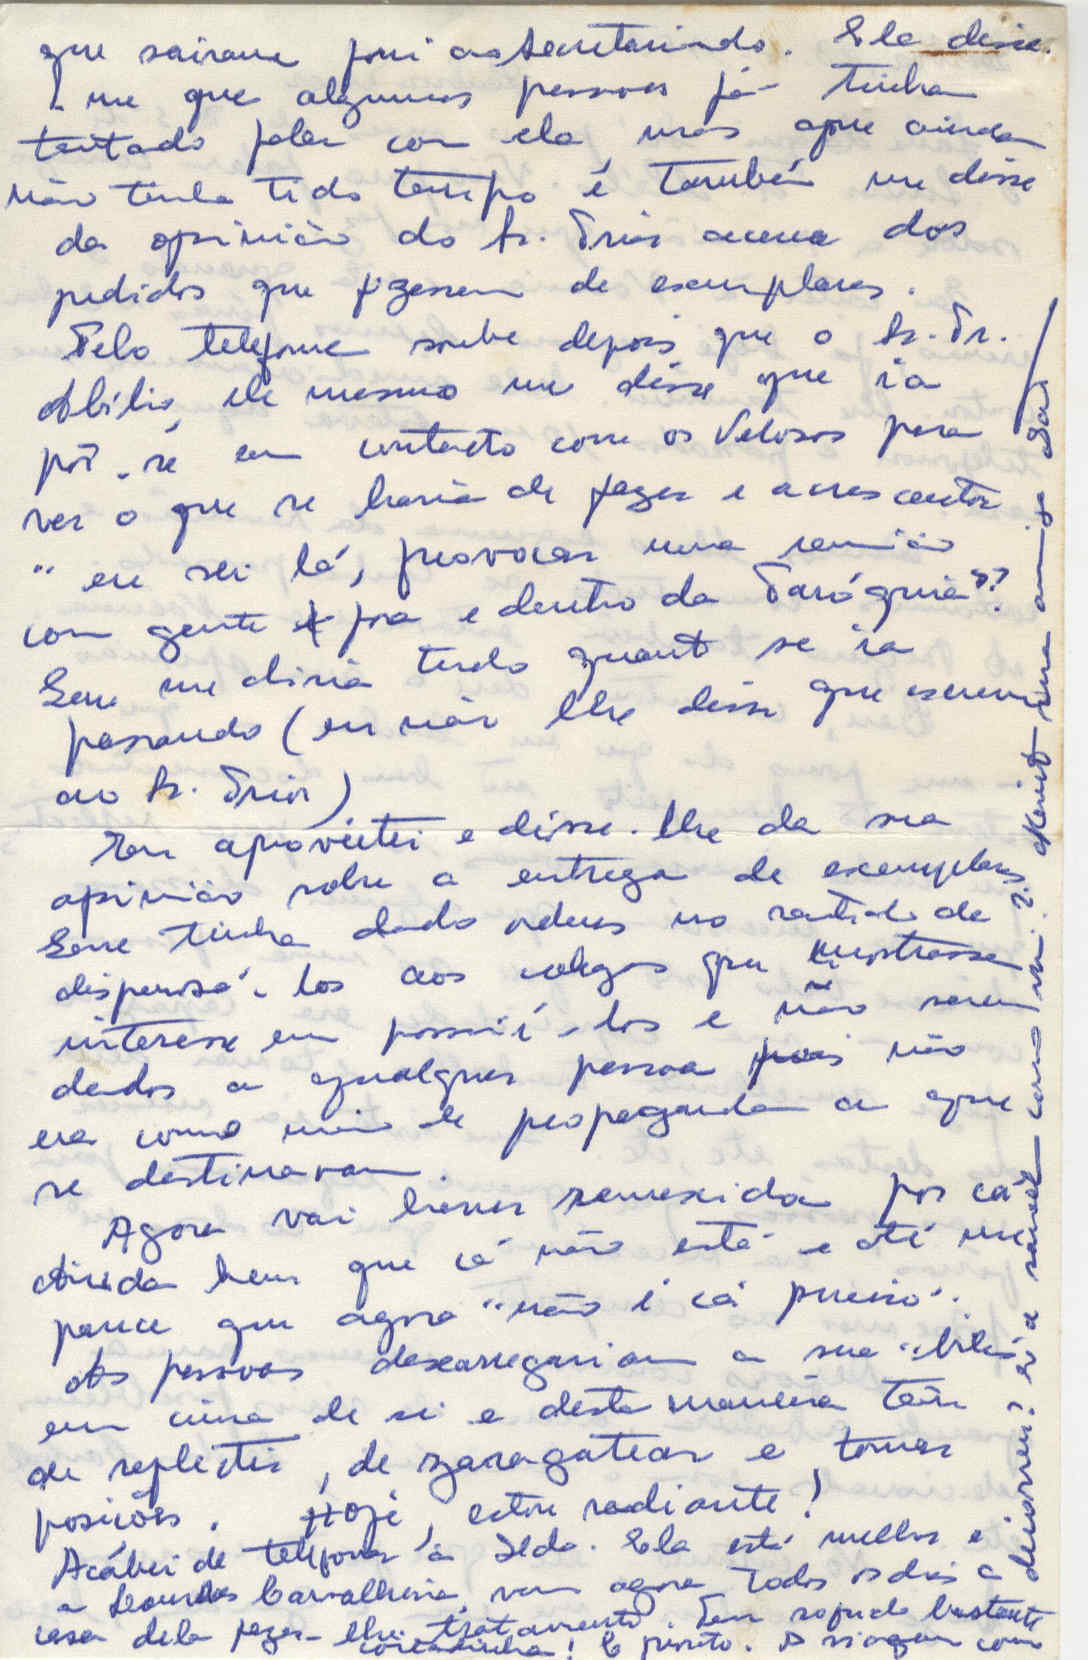 que sairam foi ao secretariado. Ela disse-
me que algumas pessoas já tinham
tentado falar com ela mas que ainda
não tinha tido tempo e também me disse
da opinião do Sr. Prior acerca dos
pedidos que fizessem de exemplares.
Pelo telefone soube depois que o Sr. Dr.
Abílio, ele mesmo me disse que ia
pôr-se em contacto com os Velosos para
ver o que se havia de fazer e acrescentou
"eu sei lá, provocar uma reunião
com gente fora e dentro da Paróquia"?
me diria tudo quanto se ia
passando (eu não lhe disse que escrevi
ao Sr. Prior)
Eu aproveitei e disse-lhe da sua
opinião sobre a entrega de exemplares
tinha dado ordens no sentido de
dispensá-los aos colegas que mostrassem
interesse em possuí-los e não serem
dados a qualquer pessoa pois não
era como meio de propaganda a que
se destinavam.
Agora vai haver remexida por cá
Ainda bem que cá não está e até me
parece que agora "não é cá preciso".
As pessoas descarregariam a sua "bílis"
em cima de si e desta maneira têm
de reflectir, de zaragatear e tomar
posições. Hoje, estou radiante!
Acabei de telefonar à Ilda. Ela está melhor e
a Lourdes Carvalheira vem agora todos os dias a
casa dela fazer-lhe tratamento. Tem sofrido bastante
coitadinha! E pronto. A viagem com
decorreu? e a saúde como vai? Aceite uma amiga